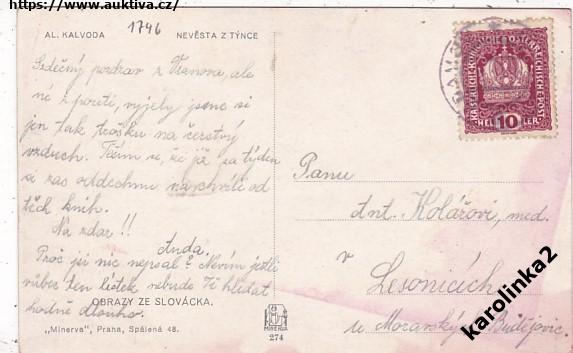 https://www.auktiva.cz/
1746
AL. KALVODA NEVĚSTA Z TÝNCE
Srdečný pozdrav z Vranova, ale
ne z pouti, vyjely jsme si
jen tak trošku na čerstvý
vzduch. Těším se, že již za týden
si zas oddechnu na chvíli od
těch knih.
Na zdar!!
Anda.
Proč jsi nic nepsal? Nevím jestli
vůbec ten lístek nebude Tě hledat
hodně dlouho.
OBRAZY ZE SLOVÁCKA.
„Minerva", Praha, Spálená 48.
MINERVA
274
KAISERLICHE KÖNIGLICHE ÖSTERREICHISCHE POST
HELLER 10
Panu
Ant. Kolářovi, med.
v
Lesonicích
u Moravský Budějovic.
karolinka2